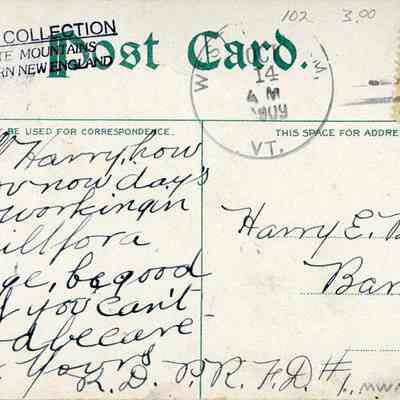 102 3.00
COLLECTION
TE MOUNTAINS
RN NEW ENGLAND
Post Card.
W
14
A M
1909
VT.
BE USED FOR CORRESPONDENCE.
THIS SPACE FOR ADDRE
Harry, how
now day's
working in
ill for a
ge, be good
if you can't
d be care-
Yours
R. D. P.
Harry E. B
Bar
R. F. D. #1.
MW